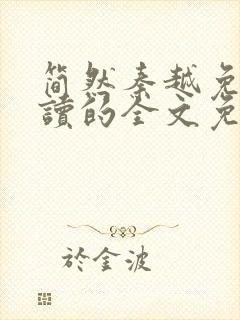 简然秦越免
讀的全文免
於金波